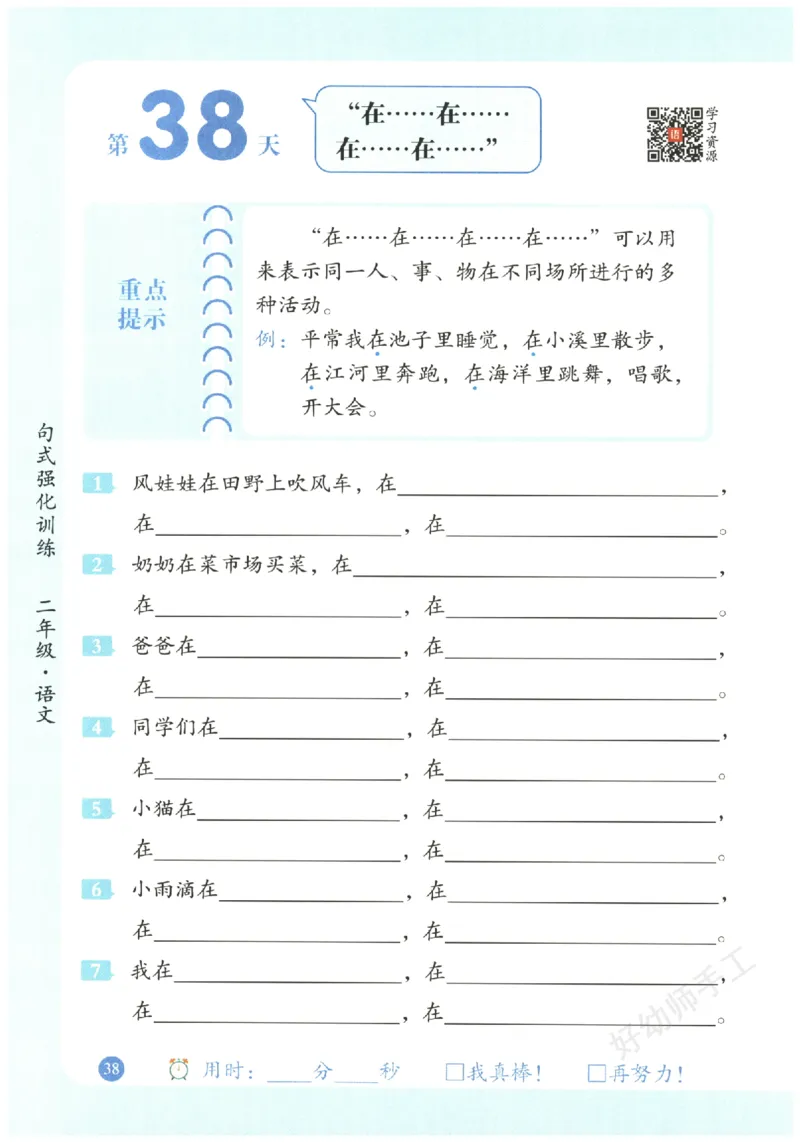 第38天
“在……在……
在……在……”
学习资源
重点
提示
“在……在……在……在……”可以用
来表示同一人、事、物在不同场所进行的多
种活动。
例：平常我在池子里睡觉，在小溪里散步，
在江河里奔跑，在海洋里跳舞，唱歌，
开大会。
句式强化训练 二年级·语文
1 风娃娃在田野上吹风车，在____________，
在____________，在____________。
2 奶奶在菜市场买菜，在____________，
在____________，在____________。
3 爸爸在____________，在____________，
在____________，在____________。
4 同学们在____________，在____________，
在____________，在____________。
5 小猫在____________，在____________，
在____________，在____________。
6 小雨滴在____________，在____________，
在____________，在____________。
7 我在____________，在____________，
在____________，在____________。
好幼师手工
38 用时：____分____秒 □我真棒！ □再努力！